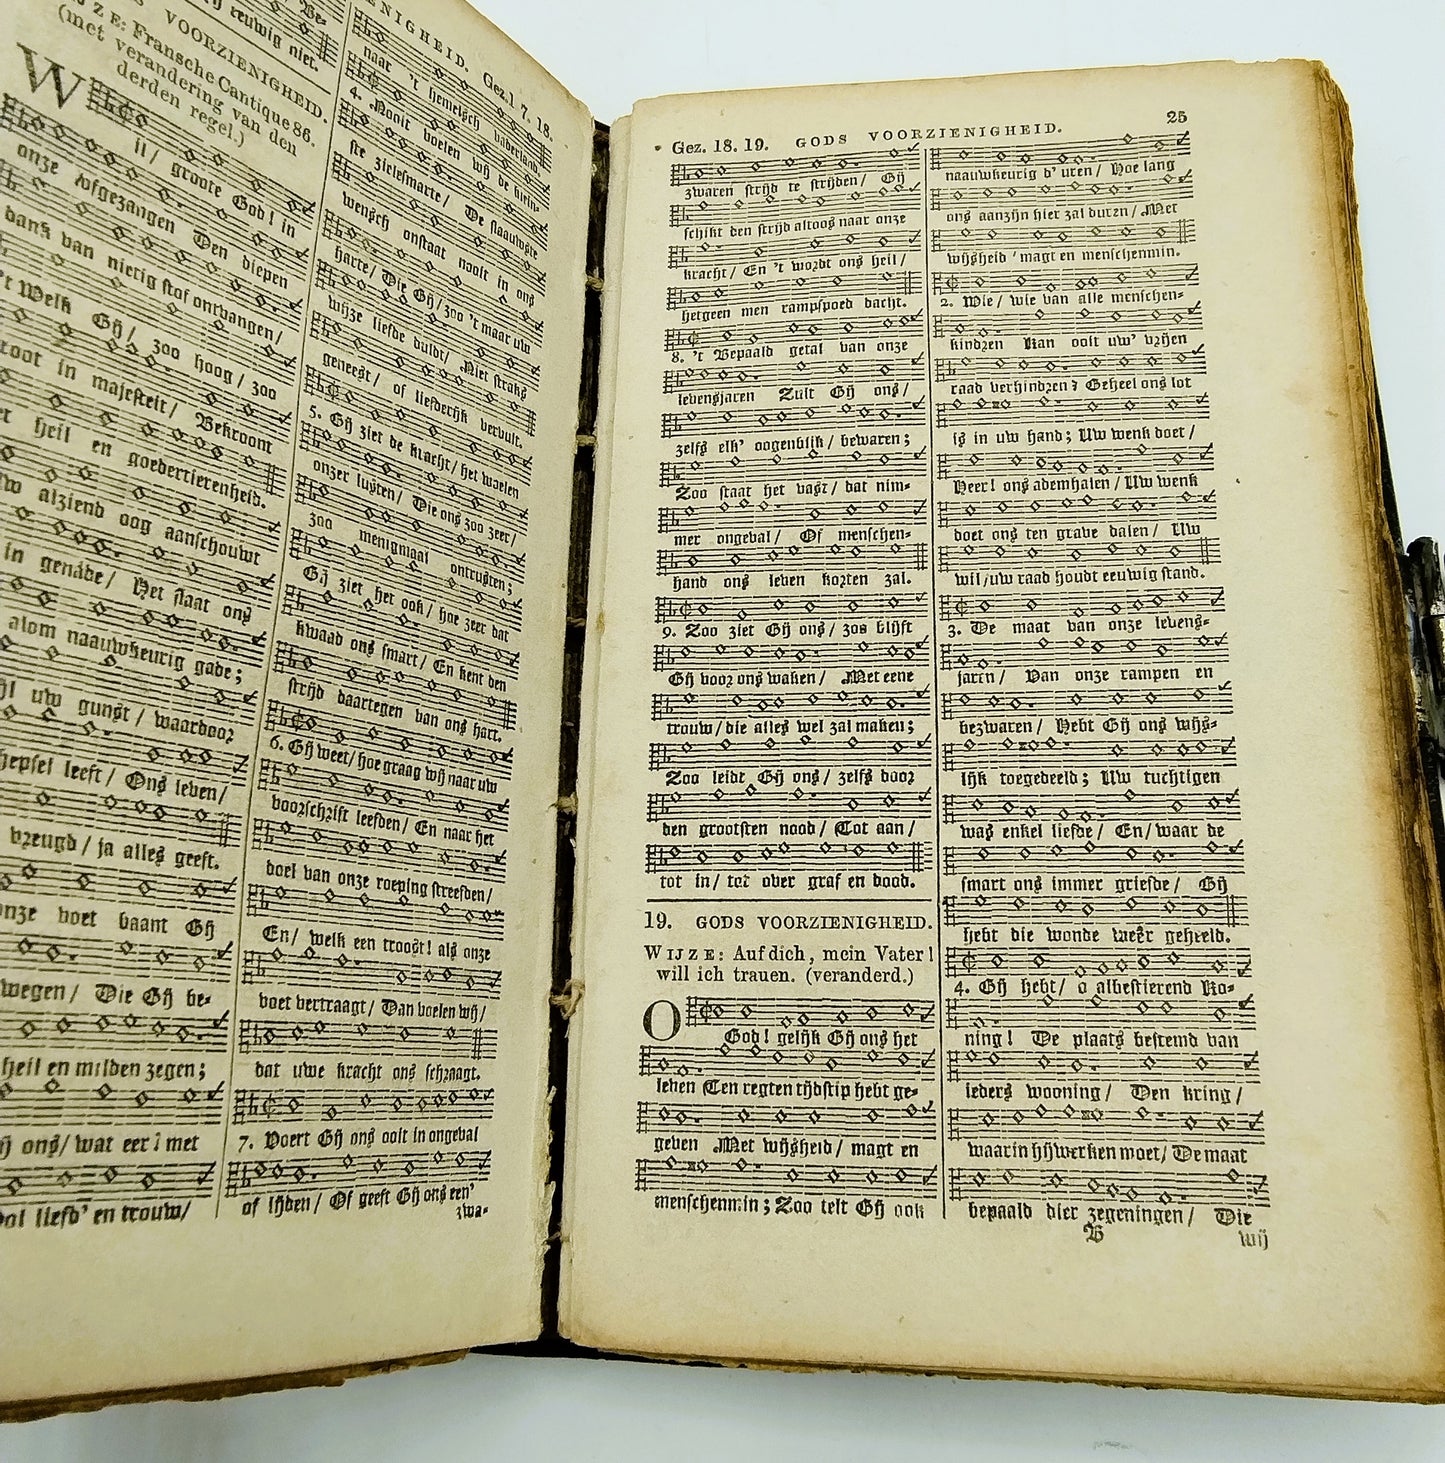 eeuwig niet.
VOORZIENIGHEID.
Fransche Cantique 86.
(met verandering van den
derden regel.)
W
ij/ groote God! in
onze afgezangen Den diepen
dank van nietig stof ontvangen/
't Welk Gij/ zoo hoog/ zoo
groot in majesteit/ Bekroont
heil en goedertierenheid.
alziend oog aanschouwt
in genáde/ Het slaat ons
alom naauwkeurig gade;
uw gunst/ waardoor
leeft/ Ons leven/
vreugd/ ja alles geeft.
onze voet baant Gij
wegen/ Die Gij be-
heil en milden zegen;
ons/ wat eer! met
liefd' en trouw/
Gez. 17. 18.
naar 't hemelsch vaderland.
4. Nooit voelen wij de klein-
ste zielesmarte/ De flaauwste
wensch ontstaat nooit in ons
harte/ Die Gij/ zoo 't maar uw
wijze liefde duldt/ Niet straks
geneest/ of liefderijk vervult.
5. Gij ziet de kracht/ het woelen
onzer lusten/ Die ons zoo zeer/
zoo menigmaal ontrusten;
Gij ziet het ook/ hoe zeer dat
kwaad ons smart/ En kent den
strijd daartegen van ons hart.
6. Gij weet/ hoe graag wij naar uw
voorschrift leefden/ En naar het
doel van onze roeping streefden/
En/ welk een troost! als onze
voet vertraagt/ Dan voelen wij/
dat uwe kracht ons schraagt.
7. Voert Gij ons ooit in ongeval
of lijden/ Of geeft Gij ons een'
zwa-
Gez. 18. 19. GODS VOORZIENIGHEID. 25
zwaren strijd te strijden/ Gij
schikt den strijd altoos naar onze
kracht/ En 't wordt ons heil/
hetgeen men rampspoed dacht.
8. 't Bepaald getal van onze
levensjaren Zult Gij ons/
zelfs elk' oogenblik/ bewaren;
Zoo staat het vast/ dat nim-
mer ongeval/ Of menschen-
hand ons leven korten zal.
9. Zoo ziet Gij ons/ zoo blijft
Gij voor ons waken/ Met eene
trouw/ die alles wel zal maken;
Zoo leidt Gij ons/ zelfs door
den grootsten nood/ Tot aan/
tot in/ tot over graf en dood.
19. GODS VOORZIENIGHEID.
WIJZE: Auf dich, mein Vater!
will ich trauen. (veranderd.)
O
God! gelijk Gij ons het
leven Ten regten tijdstip hebt ge-
geven Met wijsheid/ magt en
menschenmin; Zoo telt Gij ook
naauwkeurig d' uren/ Hoe lang
ons aanzijn hier zal duren/ Met
wijsheid/ magt en menschenmin.
2. Wie/ wie van alle menschen-
kindren Kan ooit uw' vrijen
raad verhindren? Geheel ons lot
is in uw hand; Uw wenk doet/
Heer! ons ademhalen/ Uw wenk
doet ons ten grave dalen/ Uw
wil/ uw raad houdt eeuwig stand.
3. De maat van onze levens-
jaren/ Van onze rampen en
bezwaren/ Hebt Gij ons wijs-
lijk toegedeeld; Uw tuchtigen
was enkel liefde/ En/ waar de
smart ons immer griefde/ Gij
hebt die wonde weêr geheeld.
4. Gij hebt/ o albestierend Ko-
ning! De plaats bestemd van
ieders wooning/ Den kring/
waarin hij werken moet/ De maat
bepaald dier zegeningen/ Die
B wij